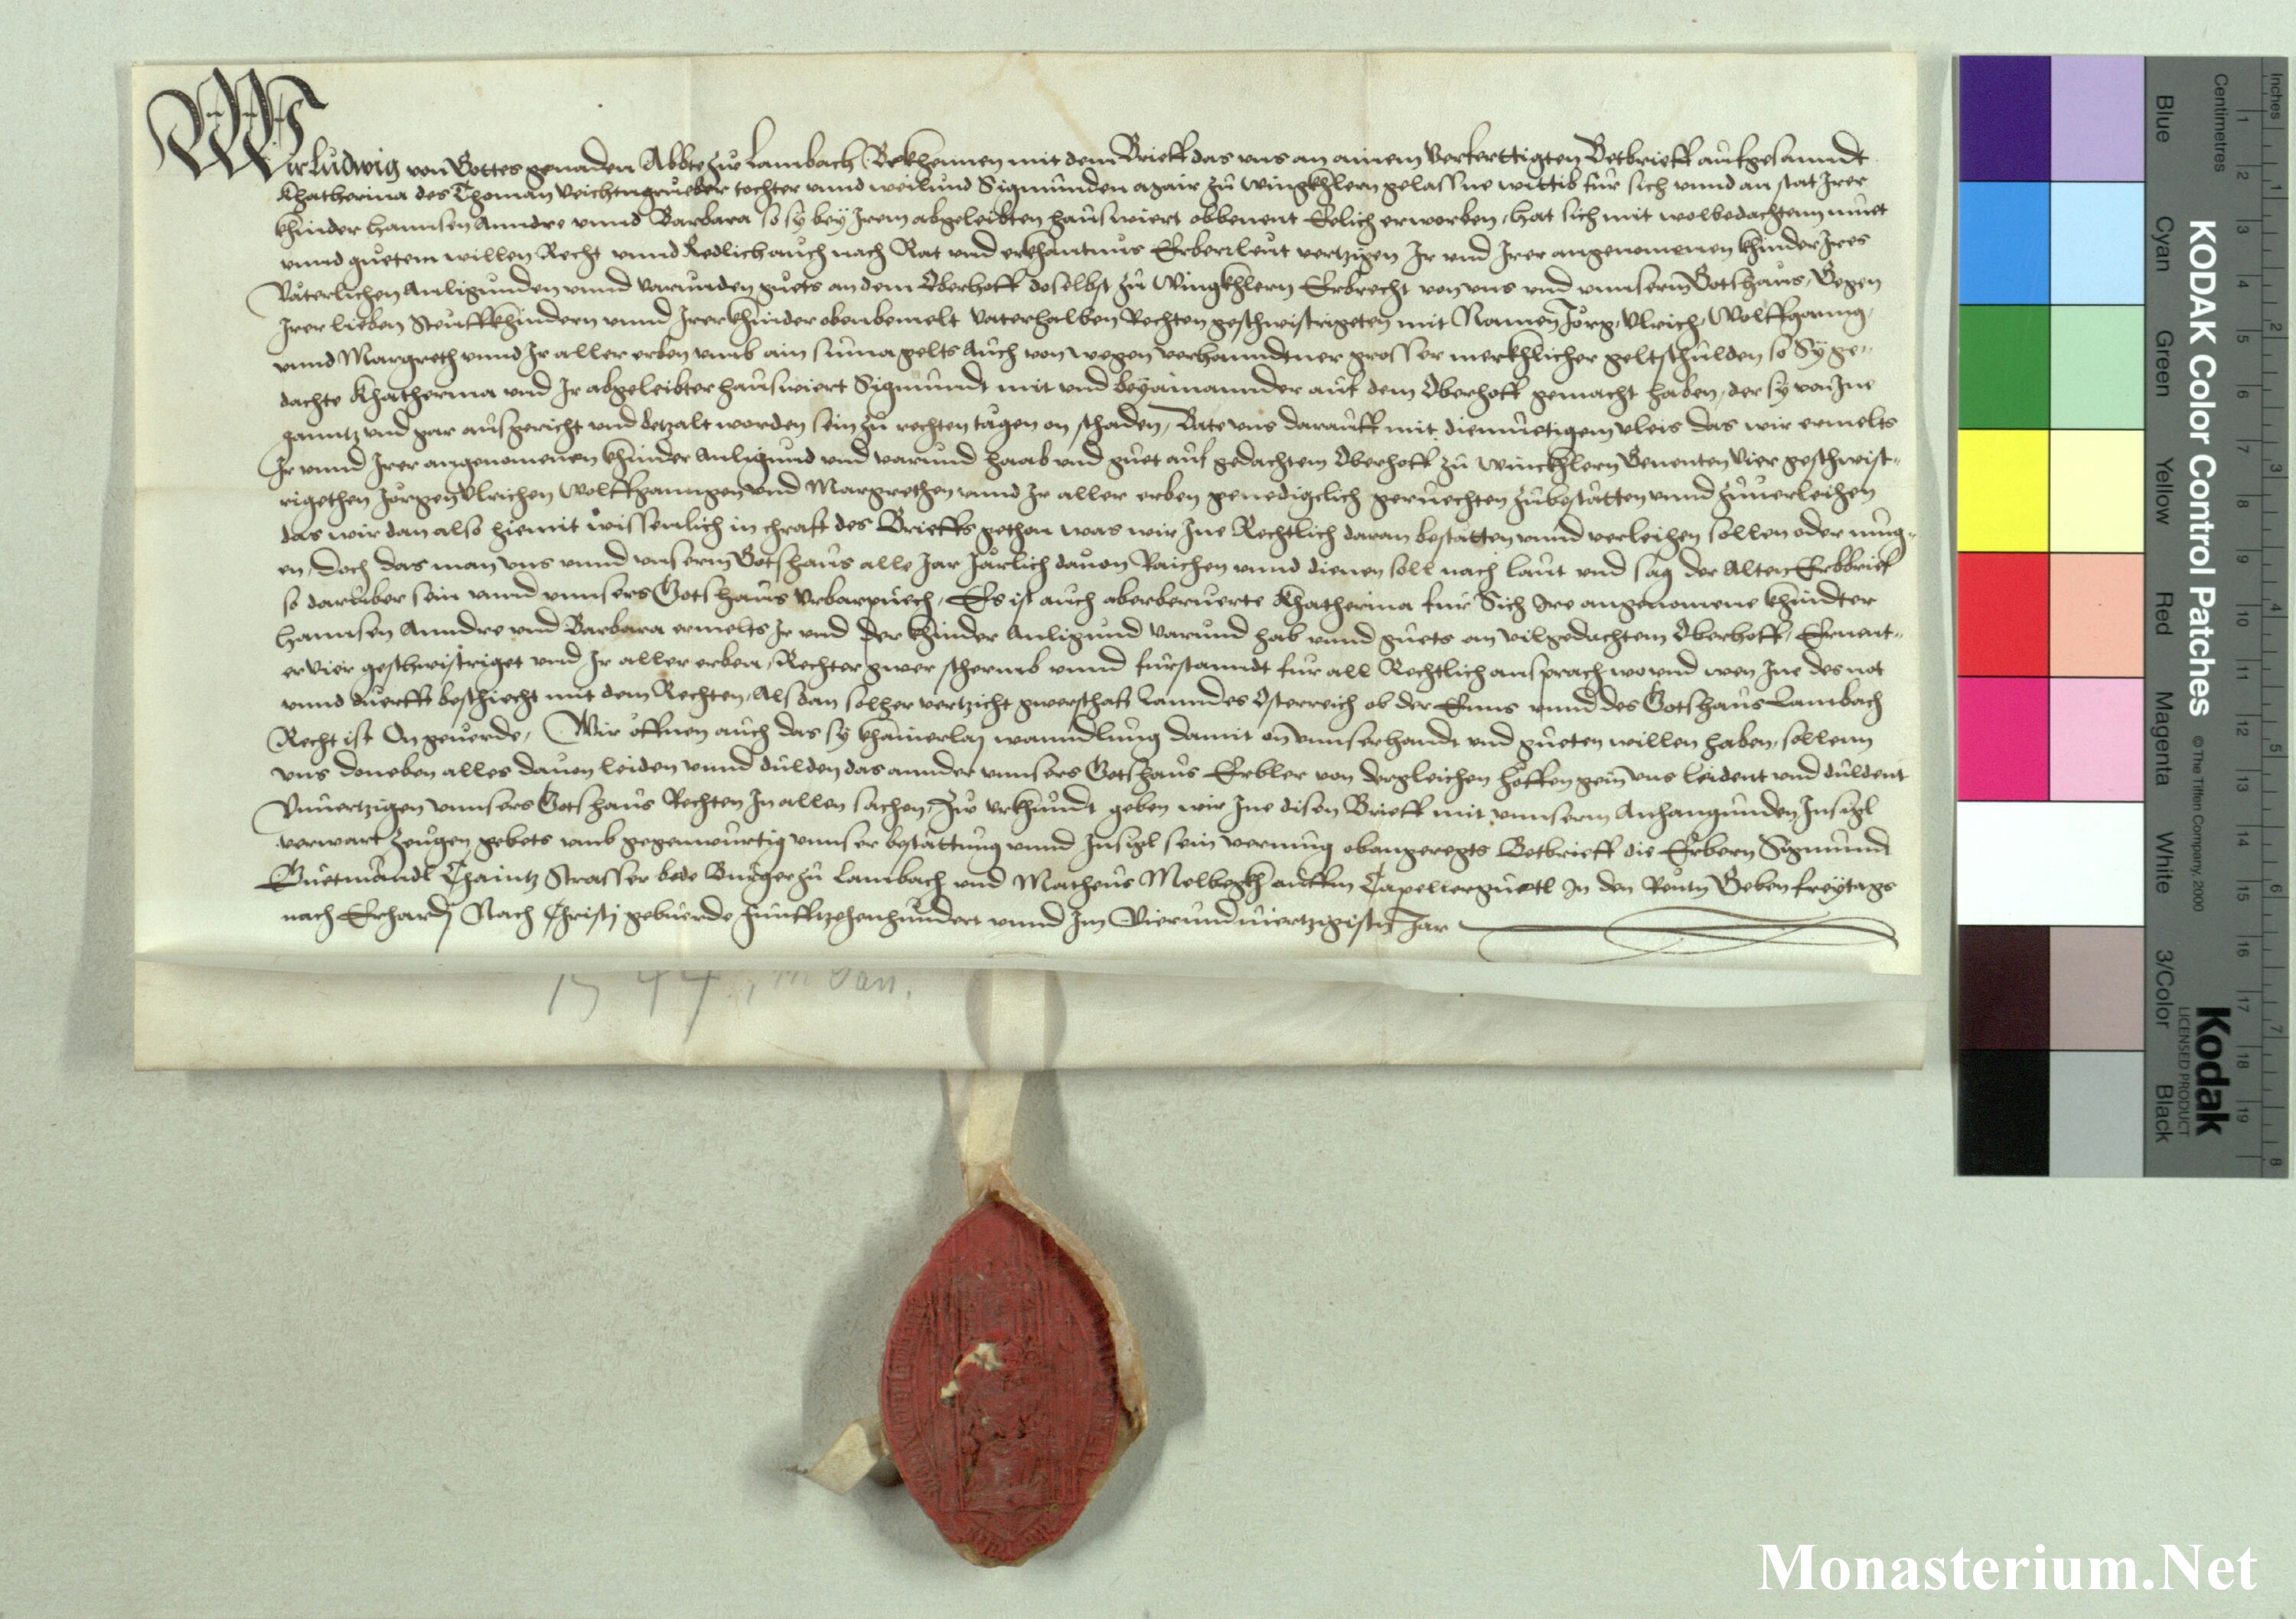 Wir Ludwig von Gottes genaden Abbte zu Lambach Bekhennen mit dem Brieff das vns an ainem verferttigten Betbrieff aufgesanndt
Khatherina des Thoman Veichtngrueber tochter vnnd weilund Sigmunden agair zu Wingkhlern gelassne wittib fur sich vnnd an stat Irer
khinder Hannsen Anndre vnnd Barbara so sy bey Irem abgeleibten hauswiert obbenent Eelich erworben, hat sich mit wolbedachtem muet
vnnd guetem willen Recht vnnd Redlich auch nach Rat vnd erkhantnus Erberrleut vertzigen Ir vnd Irer angenomenen khinder Ires
Väterlichen Anligunden vnnd varunden guets an dem Oberhoff doselbst zu Wingkhlern Erbrecht von vns vnd vnnserm Gotshaus, Gegen
Irer lieben Steuffkhindern vnnd Irer khinder obenbemelt Vaterhalben Rechten geschwistrigeten mit Namen Jörg, Vlrich, Wolffganng,
vnnd Margreth vnnd Ir aller erben vmb ain suma gelts Auch von wegen verhanndtner grosser merkhlicher geltschulden so Sy ge-
dachte Khatherina vnd Ir abgeleibter hauswiert Sigmundt mit vnd beyainannder auf dem Oberhoff gemacht haben, der sy von Ine
ganntz vnd gar ausgericht vnd betzalt worden sein zu rechten tägen on schaden, Bate vns darauff mit diemuetigem vleis das wir ermelts
Ir vnnd Irer angenomenen khinder Anligund vnd varund haab vnd guet auf gedachtem Oberhoff zu Winckhlern Benenten Vier geschwist-
rigethen Jörgen Vlrichen Wolffganngen vnd Margrethen vnnd Ir aller erben genedigclich geruechten zubestätten vnnd zuuerleihen
das wir dan also hiemit wissenlich in chraft des Brieffs gethan was wir Ine Rechtlich daran bestätten vnnd verleihen sollen oder mug-
en, Doch das man vns vnnd vnserm Gotshaus alle Jar Järlich dauon Raichen vnnd dienen soll nach laut vnd sag der Alten Erbbrief
so daruber sein vnnd vnnsers Gotshaus Vrbarpuech, Es ist auch aberberuerte Khatherina fur Sich Ire angenomene khindter
Hannsen Anndre vnd Barbara ermelts Ir vnd Der khinder Anligund varund hab vnnd guets an vilgedachtem Oberhoff, Ernent-
er vier geschwistriget vnd Ir aller erben, Rechter gwer schermb vnnd furstanndt fur all Rechtlich ansprach wo vnd wen Ine des not
vnnd duerfft beschiecht mit dem Rechten, Als dan solher vertzicht gwerschaft Lanndes Österreich ob der Enns vnnd des Gotshaus Lambach
Recht ist On geuerde, Wir öffnen auch das sy khainerlaj wanndlung damit on vnnser handt vnd gueten willen haben, sollenn
vns doneben alles dauon leiden vnnd dulden das annder vnnsers Gotshaus Erbler von dergleichen höffen gein vns leident vnd duldent
Vnuertzigen vnnsers Gotshaus Rechten In allen sachen, Zu Vrkhundt geben wir Ine disen Brieff mit vnnserm Anhangunden Insigl
verwart Zeugen gebets vmb gegenwurtig vnnser bestattung vnnd Insigl sein vermug obangeregts Betbrieff die Erbern Sigmund
Guetmändl Chaintz Strasser bede Burger zu Lambach vnd Matheus Melbegkh auffm Capellerguetl In den Reutn Geben freytags
nach Erhardj Nach Christj geburde Funfftzehenhundert vnnd Im Vierundviertzigistn Jar
1544, 11. Jan.
KODAK Color Control Patches
© The Tiffen Company, 2000
Kodak
LICENSED PRODUCT
Inches
Centimetres
Blue
Cyan
Green
Yellow
Red
Magenta
White
3/Color
Black
1 2 3 4 5 6 7 8 9 10 11 12 13 14 15 16 17 18 19
1 2 3 4 5 6 7 8
Monasterium.Net